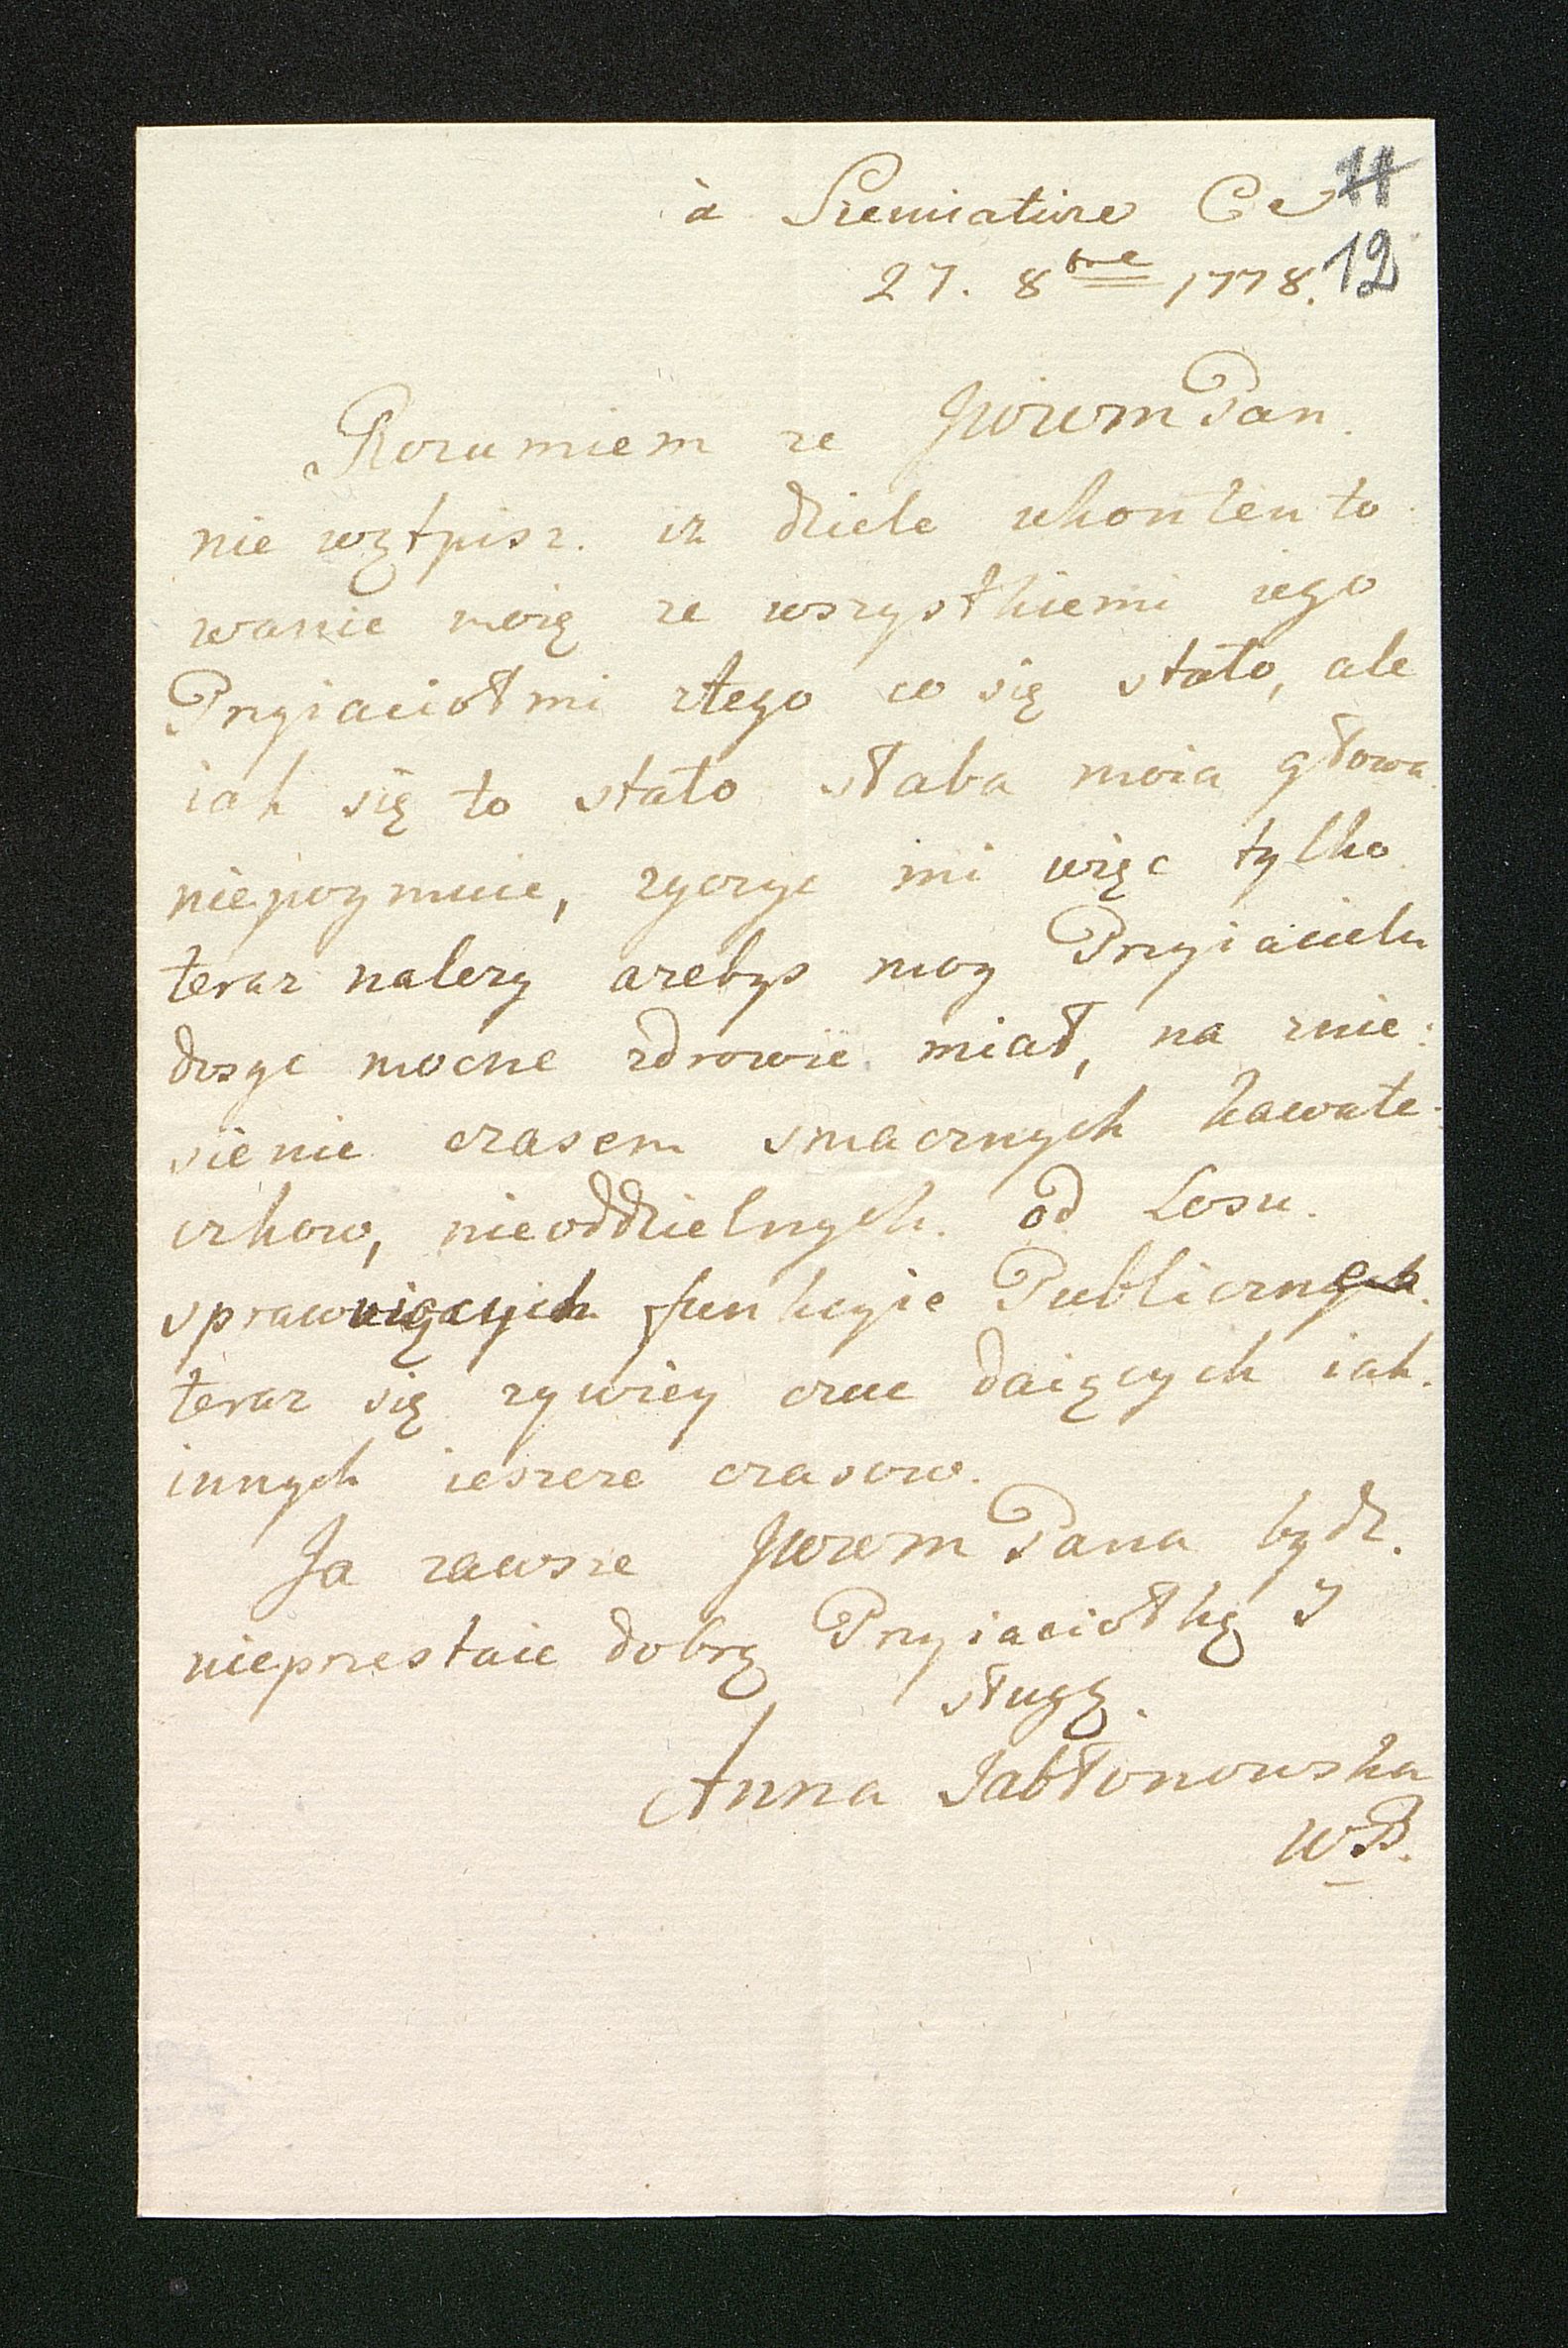 à Siemiatize Ce 11
27. 8bre 1778. 12
Rozumiem ze JWWM Pan.
nie wątpisz. iz dziele ukontento
wanie moię ze wszystkiemi iego
Przyiaciołmi ztego co się stało, ale
iak się to stało słaba moia głowa
niepoymuie, zyczyc mi więc tylko
teraz nalezy azebys moy Przyiacielu
dosyc mocne zdrowie miał, na znie:
sienie czasem smacznych kawałe:
czkow, nieoddzielnych. od Losu.
sprawuiących funkcyie Publiczne
teraz się zywiey czuc daiących iak.
innych ieszcze czasow.
Ja zawsze JWWM Pana bydz.
nieprzestaie dobrą Przyiaciołką I
sługą.
Anna Jabłonowska
WB.